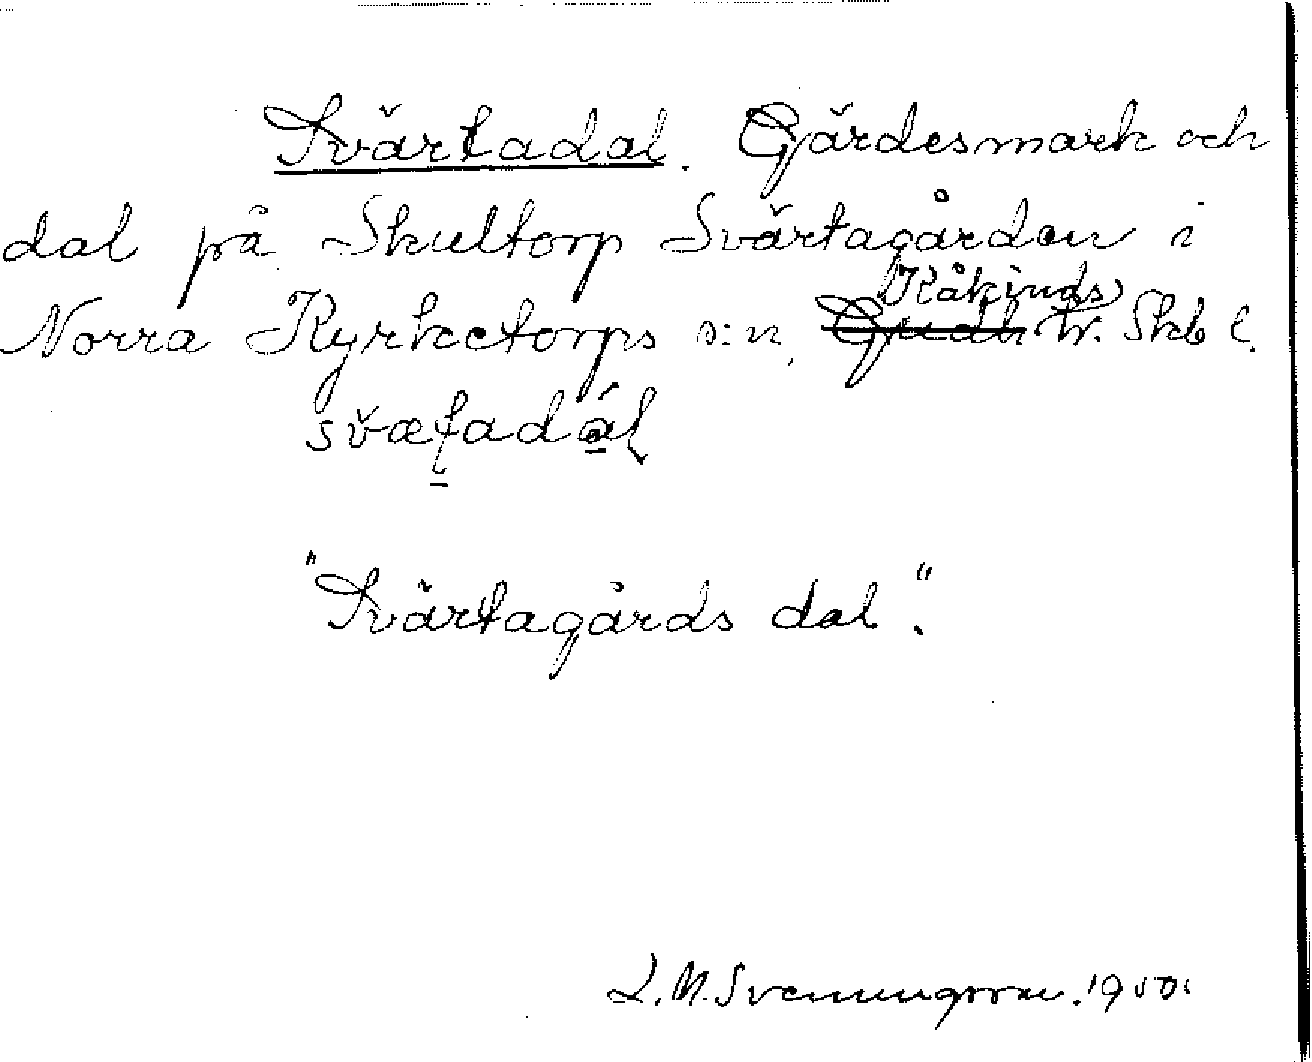 Svärtadal. Gärdesmark och
dal på Skultorp Svärtagården i
Norra Kyrketorps s:n, Kåkinds hr. Skb l.
sväṭadál
"Svärtagårds dal".
L.M. Svenungsson. 1950.